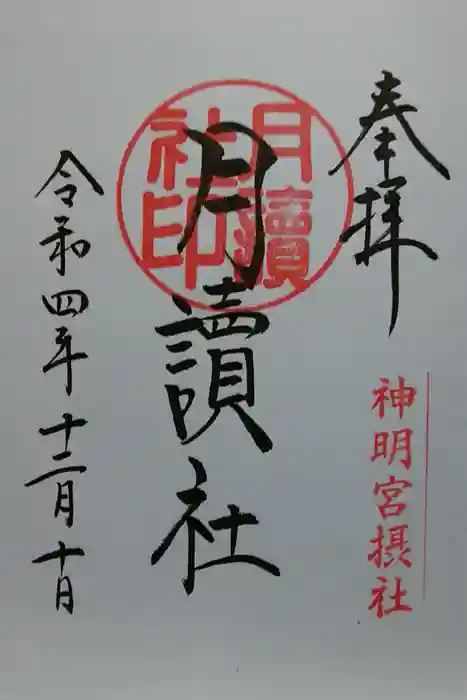 奉拝
神明宮摂社
月讀社印
月讀社
令和四年十二月十日